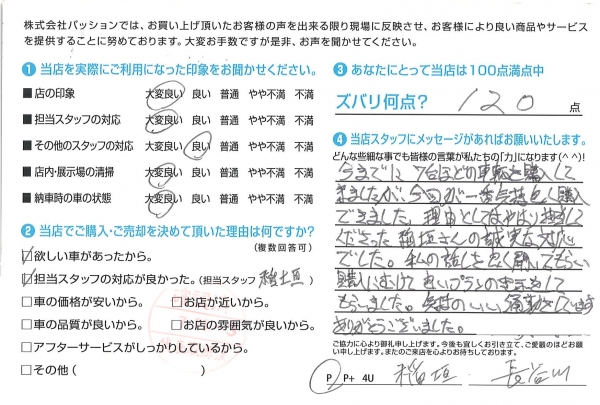 株式会社パッションでは、お買い上げ頂いたお客様の声を出来る限り現場に反映させ、お客様により良い商品やサービス
を提供することに努めております。大変お手数ですが是非、お声を聞かせてください。
❶ 当店を実際にご利用になった印象をお聞かせください。
■ 店の印象 大変良い 良い 普通 やや不満 不満
■ 担当スタッフの対応 大変良い 良い 普通 やや不満 不満
■ その他のスタッフの対応 大変良い 良い 普通 やや不満 不満
■ 店内・展示場の清掃 大変良い 良い 普通 やや不満 不満
■ 納車時の車の状態 大変良い 良い 普通 やや不満 不満
❷ 当店でご購入・ご売却を決めて頂いた理由は何ですか?
(複数回答可)
☑欲しい車があったから。
☑担当スタッフの対応が良かった。(担当スタッフ 稲垣 )
□車の価格が安いから。 □お店が近いから。
□車の品質が良いから。 □お店の雰囲気が良いから。
□アフターサービスがしっかりしているから。
□その他 ( )
❸ あなたにとって当店は100点満点中
ズバリ何点? 120 点
❹ 当店スタッフにメッセージがあればお願いいたします。
どんな些細な事でも皆様の言葉が私たちの「力」になります(^ ^)!
今までに7台ほどの車輌を購入して
来ましたが、今回が一番気持良く購入
できました。理由としてはやはり担当して
くださった稲垣さんの誠実な対応
でした。私の話しを良く聞いてもらい
購入にむけて良いプランとお手伝いして
もらいました。気持のいい 通勤が
ありがとうございました。
ご協力に心より御礼申し上げます。今後も宜しくお引き立て、ご愛顧のほどお願
い申し上げます。またのご来店を心よりお待ちしております。
P P+ 4U 稲垣 長谷川